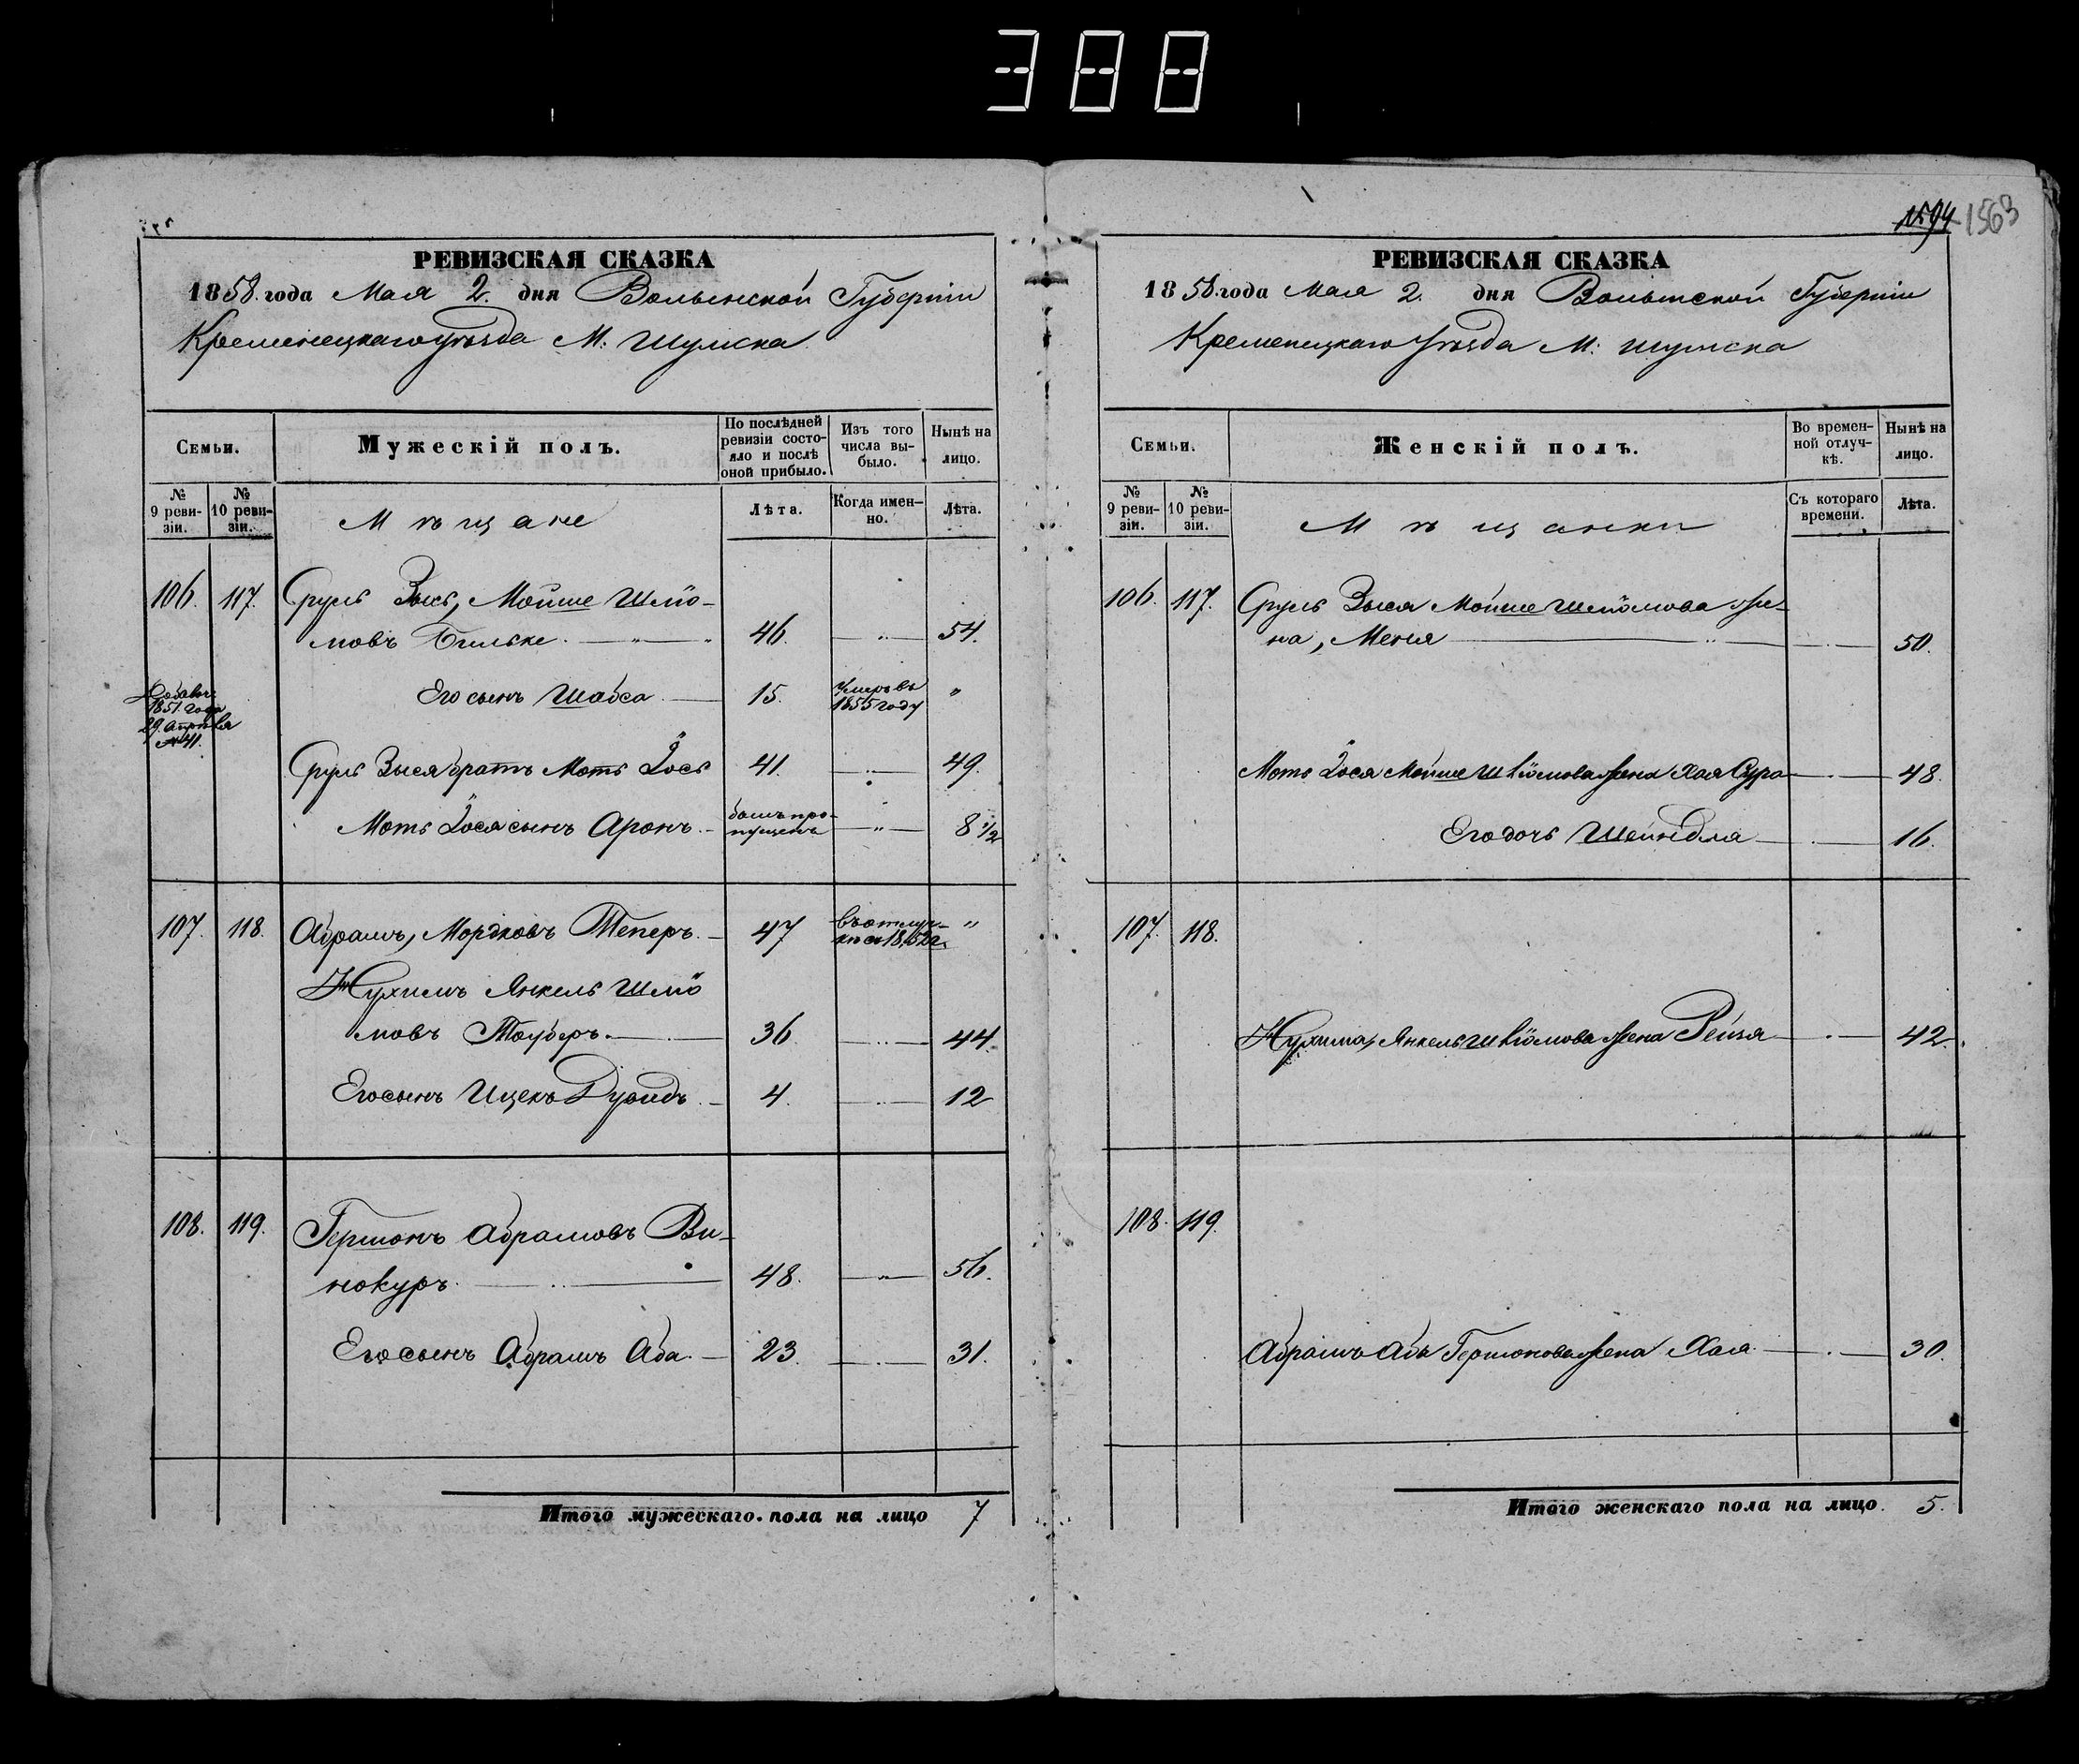 388
1594 1563
РЕВИЗСКАЯ СКАЗКА
1858. года Мая 2. дня Волынской Губернiи
Кременецкаго уѣзда М: Шумска
Семьи.
Мужескiй полъ.
По послѣдней ревизiи состо-
яло и послѣ оной прибыло.
Изъ того числа вы-
было.
Нынѣ на лицо.
№ 9 реви-
зiи.
№ 10 реви-
зiи.
Мѣщане
Лѣта.
Когда имен-
но.
Лѣта.
106. 117. Сруль Зысь, Мойше Шліо-
мовъ Бильке. 46. 54.
Добавоч:
1851. года
29. Апрѣля
№ 41.
Его сынъ Шабса 15. Умеръ въ
1855 году "
Сруль Зыся братъ Моть Іось 41. 49.
Моть Іося сынъ Аронъ. былъ про-
пущенъ 8 1/2
107. 118. Абрамъ, Мордковъ Теперъ. 47 въ отлуч-
кѣ съ 1852г. "
Нухимъ Янкель Шліо
мовъ Тауберъ. 36. 44.
Его сынъ Ицекъ Дувидъ. 4. 12
108. 119. Гершонъ Абрамовъ Ви-
нокуръ. 48. 56.
Его сынъ Абрамъ Аба. 23. 31.
Итого мужескаго пола на лицо 7
РЕВИЗСКАЯ СКАЗКА
1858. года Мая 2. дня Волынской Губернiи
Кременецкаго Уѣзда М: Шумска
Семьи.
Женскiй полъ.
Во времен-
ной отлуч-
кѣ.
Нынѣ на лицо.
№ 9 реви-
зiи.
№ 10 реви-
зiи.
Мѣщанки
Съ котораго времени.
Лѣта.
106. 117. Сруль Зыся Мойше Шліомова же-
на, Меня 50.
Моть Іося Мойше Шліомова жена Хая Сура 48.
Его дочь Шейндля 16.
107. 118.
Нухима, Янкель Шліомова жена Рейзя 42.
108. 119.
Абрамъ Абы Гершонова жена Хая. 30.
Итого женскаго пола на лицо. 5.